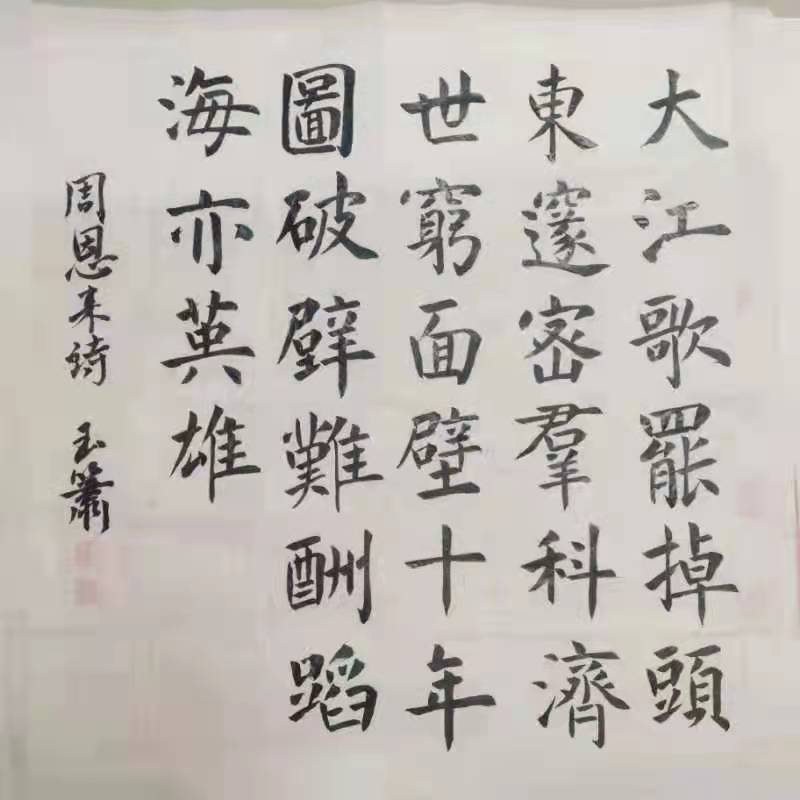 大江歌罷掉頭
東邃密羣科濟
世窮面壁十年
圖破壁難酬蹈
海亦英雄
周恩来詩 玉簫